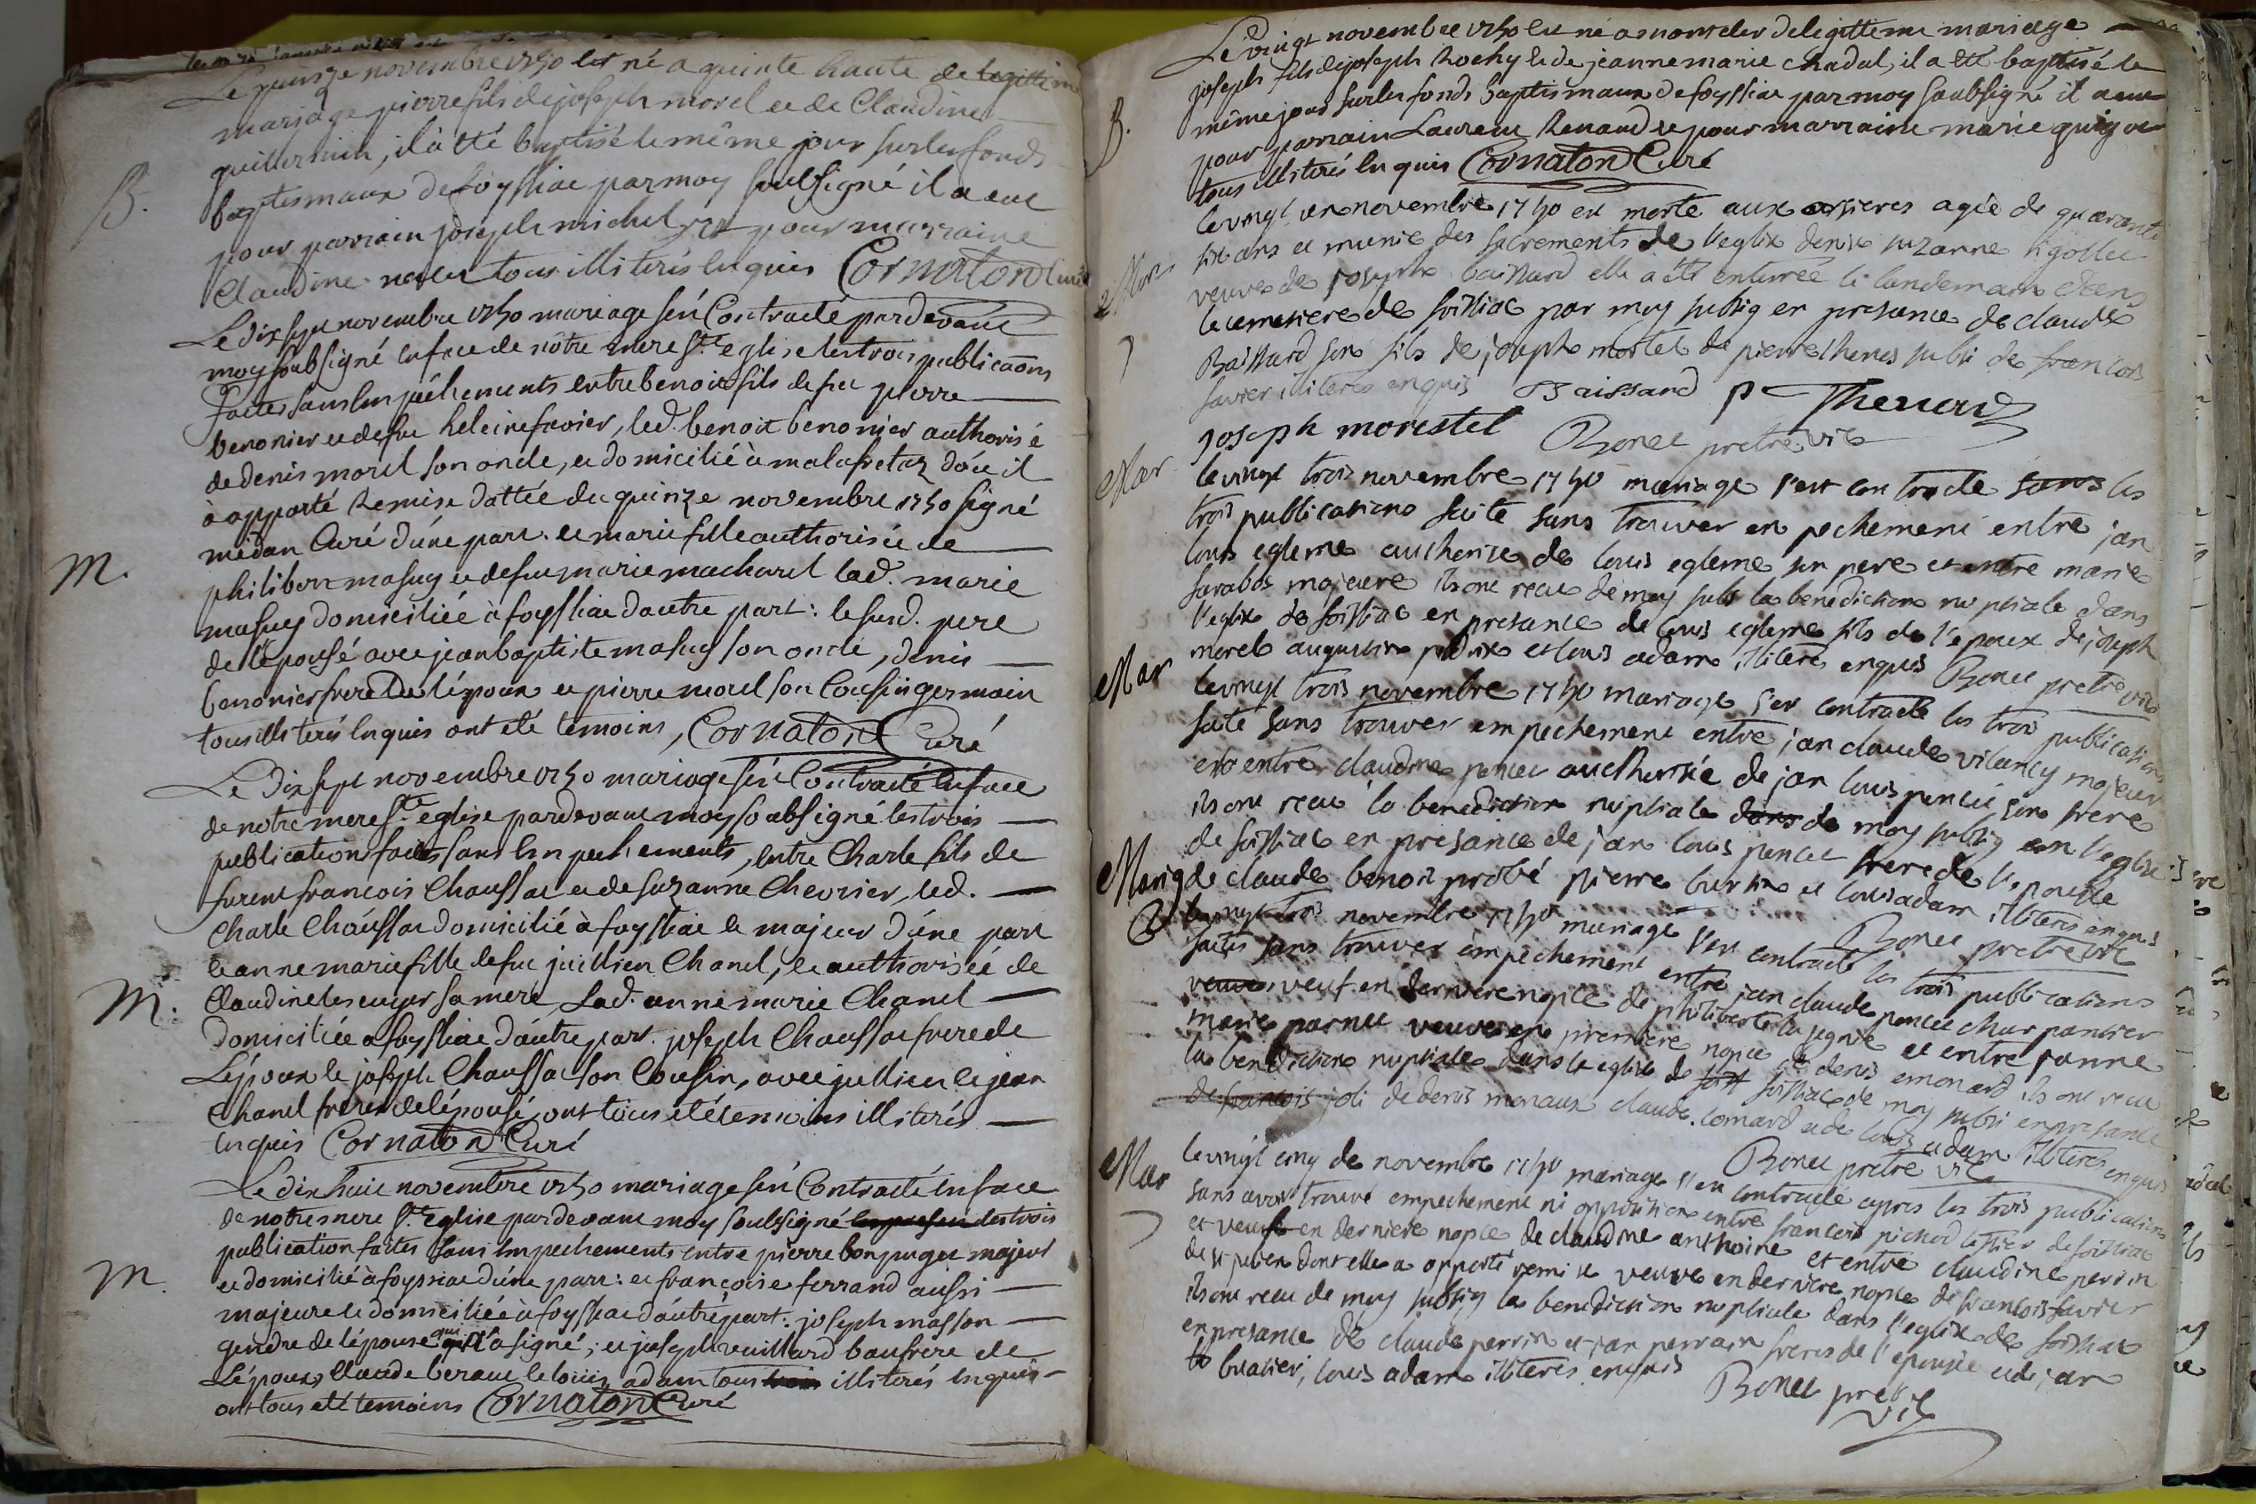 Le quinze novembre 1750 est né a quinte haute de legittime
mariage pierre fils de joseph morel et de Claudine
guillermin, il à été baptisé le même jour sur les fonds
B.
baptismaux de foyssiac par moy soubsigné il a eut
pour parrain joseph michel et pour marraine
Claudine tous illiterés enquis Cornaton Curé
Le dix sept novembre 1750 mariage s'ét Contracté pardevant
moy soubsigné en face de nôtre mere Ste eglise les trois publicaõns
faites sans empêchements entre benoit fils de feu pierre
benonier et de feu heleine favier, led. benoit benonier authorisé
de denis morel son oncle, et domicilié à malafretaz d'ou il
a apporté Remise dattée du quinze novembre 1750 signé
midan Curé d'une part. et marie fille authorisée de
M.
philibert masuy et de feue marie macharel lad. marie
masuy domiciliée à foyssiac dautre part: le susd. pere
de l'épousé avec jean baptiste masuy son oncle, denis
benonier frere de l'époux et pierre morel son Cousin germain
tous illiterés enquis ont eté temoins, Cornaton Curé
Le dix sept novembre 1750 mariage s'ét Contracté en face
de notre mere Ste eglise pardevant moy soubsigné les trois
publication faites sans empechements, entre Charle fils de
furent francois Chaussat et de suzanne Chevrier, led.
Charle Chaussat domicilié à foyssiac et majeur d'une part
et anne marie fille de feu juillien Chanel, et authorisée de
Claudine lescuyer sa mere, Lad. anne marie Chanel
M.
domiciliée a foyssiac d'autre part. joseph Chaussat frere de
L'époux et joseph Chaussat son Cousin, avec jullien et jean
Chanel freres de l'épousé, ont tous eté temoins illiterés
enquis Cornaton Curé
Le dix huit novembre 1750 mariage s'ét Contracté en face
de notre mere Ste Eglise pardevant moy soubsigné les trois
publication faites sans empechements entre pierre bonpuget majeur
M.
et domicilié à foyssiac d'une part: et francoise ferrand aussi
majeure et domiciliée à foyssiac d'autre part: joseph masson
gendre de l'épouse qui a signé; et joseph vuillard baufrere de
L'époux, Claude beraud et louis adam tous illiterés enquis
ont tous eté temoins Cornaton Curé
Le vingt novembre 1750 est né a montelier de legittime mariage
joseph fils de joseph Rochy et de jeanne marie chadal, il a été baptisé le
B.
même jour sur les fonds baptismaux de foyssiac par moy soubsigné il a eu
pour parrain Laurent Renaud et pour marraine marie
tous illiterés enquis Cornaton Curé
le vingt un novembre 1750 est morte aux agée de quarante
Mor
six ans et munie des sacrements de l'eglise denise suzanne rigollet
veuve de joseph baissard elle a été enterrée le landemain dans
le cemetiere de foissiac par moy subsig en presance de claude
Baissard son fils de joseph mortel de pierre thenod subsi de francois
favier illiteres enquis Baissard P Thenod
joseph morestel Bonet pretre vic
Mar
le vingt trois novembre 1750 mariage s'est contracte les
trois publications faite sans trouver en pechement entre jan
louis egleme autherise de louis egleme son pere et entre marie
sarabos majeure ils ont recu de moy subs la benediction nuptiale dans
l'eglise de foissiac en presance de louis egleme fils de l'epoux de joseph
morel augustin et louis adam illiteré enquis Bonet pretre vic
Mar
le vingt trois novembre 1750 mariage s'est contracte les trois publications
faite sans trouver empechement entre jan claude vilancy majeur
et entre claudine poncet autherisée de jan louis poncet son frere
ils ont recu la benediction nuptiale de moy subsig en l'eglise
de foissiac en presance de jan louis poncet frere de l'epouse
de claude benoit probé pierre burtin et louis adam illiteres enquis
Bonet pretre vic
Mariag
le vingt trois novembre 1750 mariage s'est contracte les trois publications
faites sans trouver empechement entre jan claude poncet charpantier
veuf en derniere nopce de philiberte et entre janne
marie parnet veuve en premiere nopce de denis emonard ils ont recu
la benediction nuptiale dans l'eglise de foissiac de moy subsi en presance
de francois joli de denis monaux claude comard et de louis adam illiteres enquis
Bonet pretre vic
Mar
le vingt cinq de novembre 1750 mariage s'est contracte apres les trois publications
sans avoir trouvé empechement ni opposition entre francois pichod de foissiac
et veuf en derniere nopce de claudine anthoine et entre claudine perrin
de st dont elle a apporté remise veuve en derniere nopce de francois favier
ils ont recu de moy subsig la benediction nuptiale dans l'eglise de foissiac
en presance de claude perrin et jan perrain freres de l'epouse et de jan
buatier, louis adam illiteres enquis Bonet pretre
vic